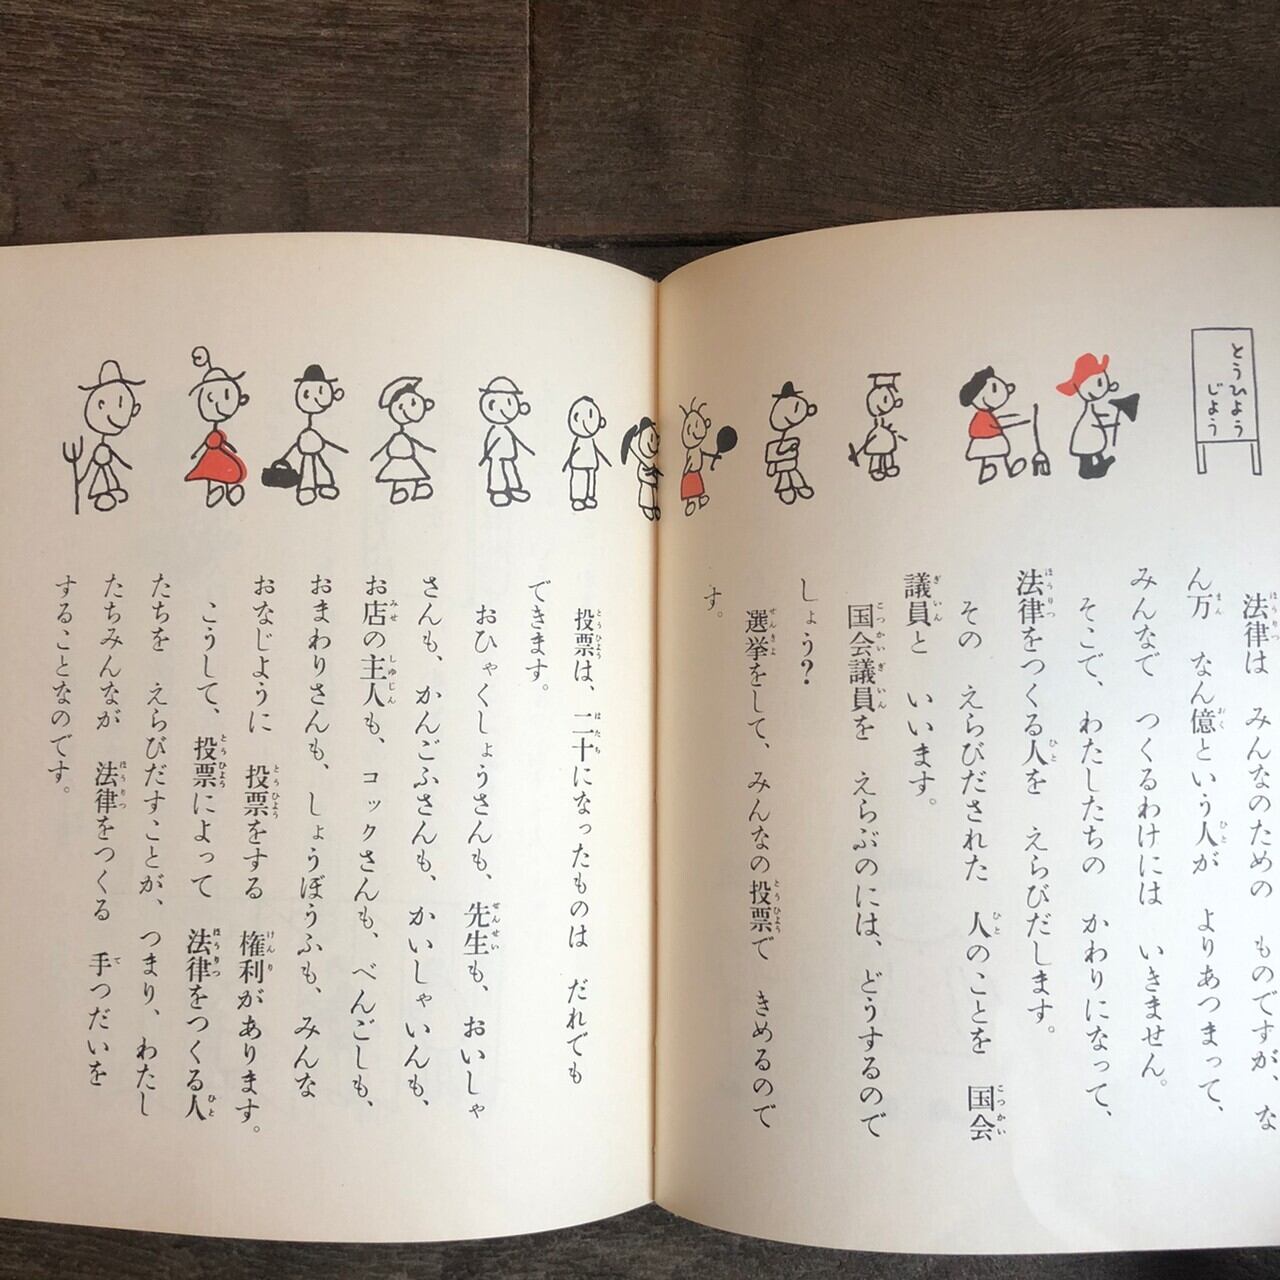 とうひよう
じよう
法律は　みんなのための　ものですが、な
ん万　なん億という人が　よりあつまって、
みんなで　つくるわけには　いきません。
そこで、わたしたちの　かわりになって、
法律をつくる人を　えらびだします。
その　えらびだされた　人のことを　国会
議員と　いいます。
国会議員を　えらぶのには、どうするので
しょう？
選挙をして、みんなの投票で　きめるので
す。
投票は、二十になったものは　だれでも
できます。
おひゃくしょうさんも、先生も、おいしゃ
さんも、かんごふさんも、かいしゃいんも、
お店の主人も、コックさんも、べんごしも、
おまわりさんも、しょうぼうふも、みんな
おなじように　投票をする　権利があります。
こうして、投票によって　法律をつくる人
たちを　えらびだすことが、つまり、わたし
たちみんなが　法律をつくる　手つだいを
することなのです。